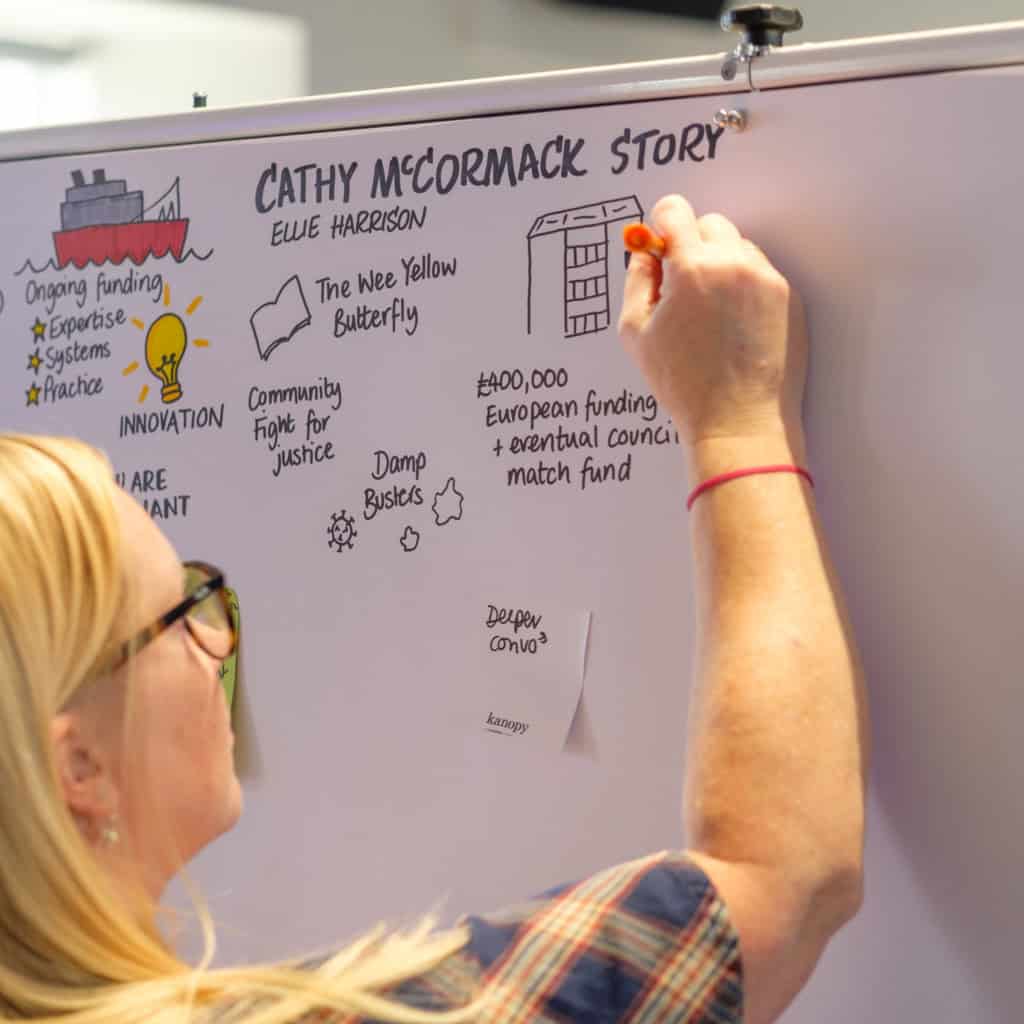 CATHY McCORMACK STORY
ELLIE HARRISON
Ongoing funding
Expertise
Systems
Practice
INNOVATION
ARE
The Wee Yellow
Butterfly
Community
Fight for
justice
Damp
Busters
£400,000
European funding
+ eventual counci
match fund
Deeper
convo³
kanopy